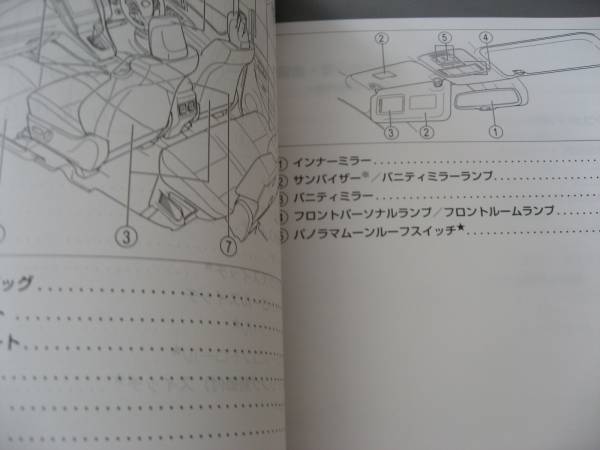 ③
⑦
ッグ
ト
ート
②
⑤
④
③
②
①
① インナーミラー
② サンバイザー※／バニティミラーランプ
③ バニティミラー
④ フロントパーソナルランプ／フロントルームランプ
⑤ パノラマムーンルーフスイッチ★